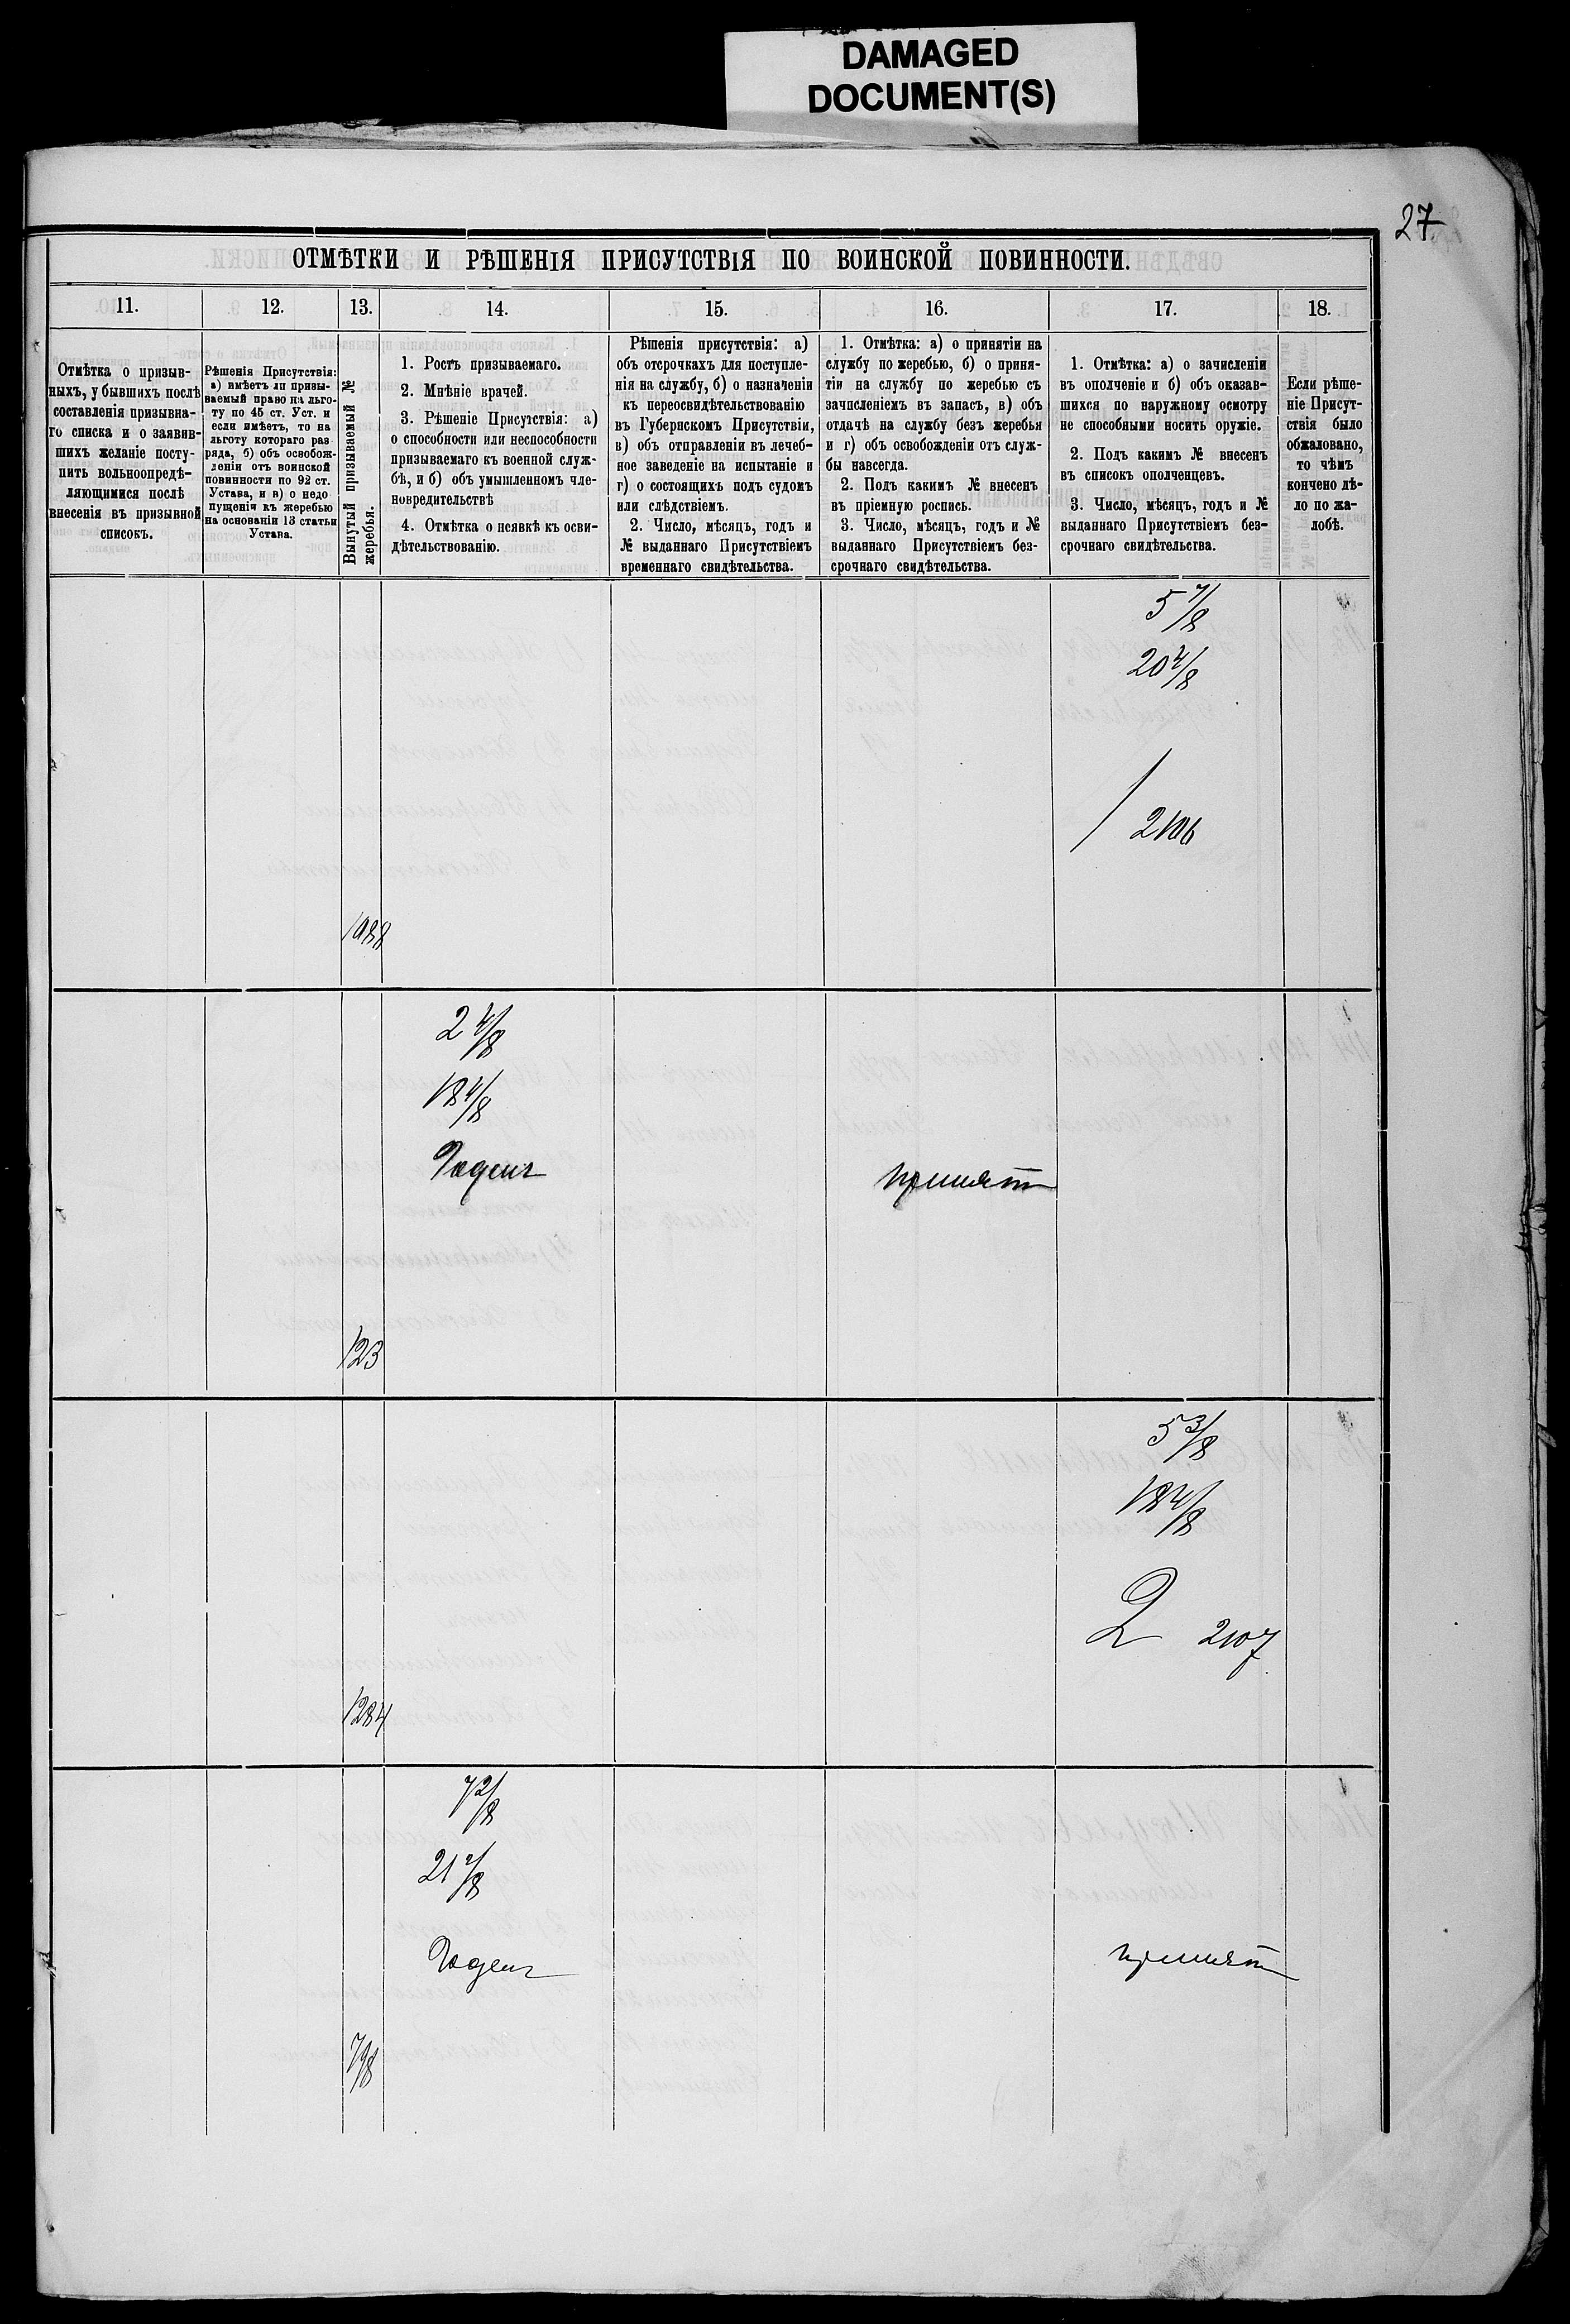 DAMAGED
DOCUMENT(S)
27
ОТМѢТКИ И РѢШЕНІЯ ПРИСУТСТВІЯ ПО ВОИНСКОЙ ПОВИННОСТИ.
11.
12.
13.
14.
15.
16.
17.
18.
Отмѣтка о призыв-
ныхъ, у бывшихъ послѣ
составленія призывна-
го списка и о заявив-
шихъ желаніе посту-
пить вольноопредѣ-
ляющимися послѣ
внесенія въ призывной
списокъ.
Рѣшенія Присутствія:
а) имѣетъ ли призы-
ваемый право на льго-
ту по 45 ст. Уст. и
если имѣетъ, то на
льготу котораго раз
ряда, б) объ освобож-
деніи отъ воинской
повинности по 92 ст.
Устава, и в) о недо
пущеніи къ жеребью
на основаніи 13 статьи
Устава.
Вынутый призываемый №
жеребья.
1. Ростъ призываемаго.
2. Мнѣніе врачей.
3. Рѣшеніе Присутствія: а)
о способности или неспособности
призываемаго къ военной служ-
бѣ, и б) объ умышленномъ чле-
новредительствѣ
4. Отмѣтка о неявкѣ къ осви-
дѣтельствованію.
Рѣшенія присутствія: а)
объ отсрочкахъ для поступле-
нія на службу, б) о назначеніи
къ переосвидѣтельствованію
въ Губернскомъ Присутствіи,
в) объ отправленіи въ лечеб-
ное заведеніе на испытаніе и
г) о состоящихъ подъ судомъ
или слѣдствіемъ.
2. Число, мѣсяцъ, годъ и
№ выданнаго Присутствіемъ
временнаго свидѣтельства.
1. Отмѣтка: а) о принятіи на
службу по жеребью, б) о приня-
тіи на службу по жеребью съ
зачисленіемъ въ запасъ, в) объ
отдачѣ на службу безъ жеребья
и г) объ освобожденіи отъ служ-
бы навсегда.
2. Подъ какимъ № внесенъ
въ пріемную роспись.
3. Число, мѣсяцъ, годъ и №
выданнаго Присутствіемъ без-
срочнаго свидѣтельства.
1. Отмѣтка: а) о зачисленіи
въ ополченіе и б) объ оказав-
шихся по наружному осмотру
не способными носить оружіе.
2. Подъ какимъ № внесенъ
въ списокъ ополченцевъ.
3. Число, мѣсяцъ, годъ и №
выданнаго Присутствіемъ без-
срочнаго свидѣтельства.
Если рѣше-
ніе Присут-
ствія было
обжаловано,
то чѣмъ
кончено дѣ-
ло по жа-
лобѣ.
5 7/8
20 4/8
1 2106
1088
2 4/8
18 4/8
Годенъ
принят
123
5 3/8
18 4/8
2 2107
1284
7 2/8
21 2/8
Годенъ
принят
798